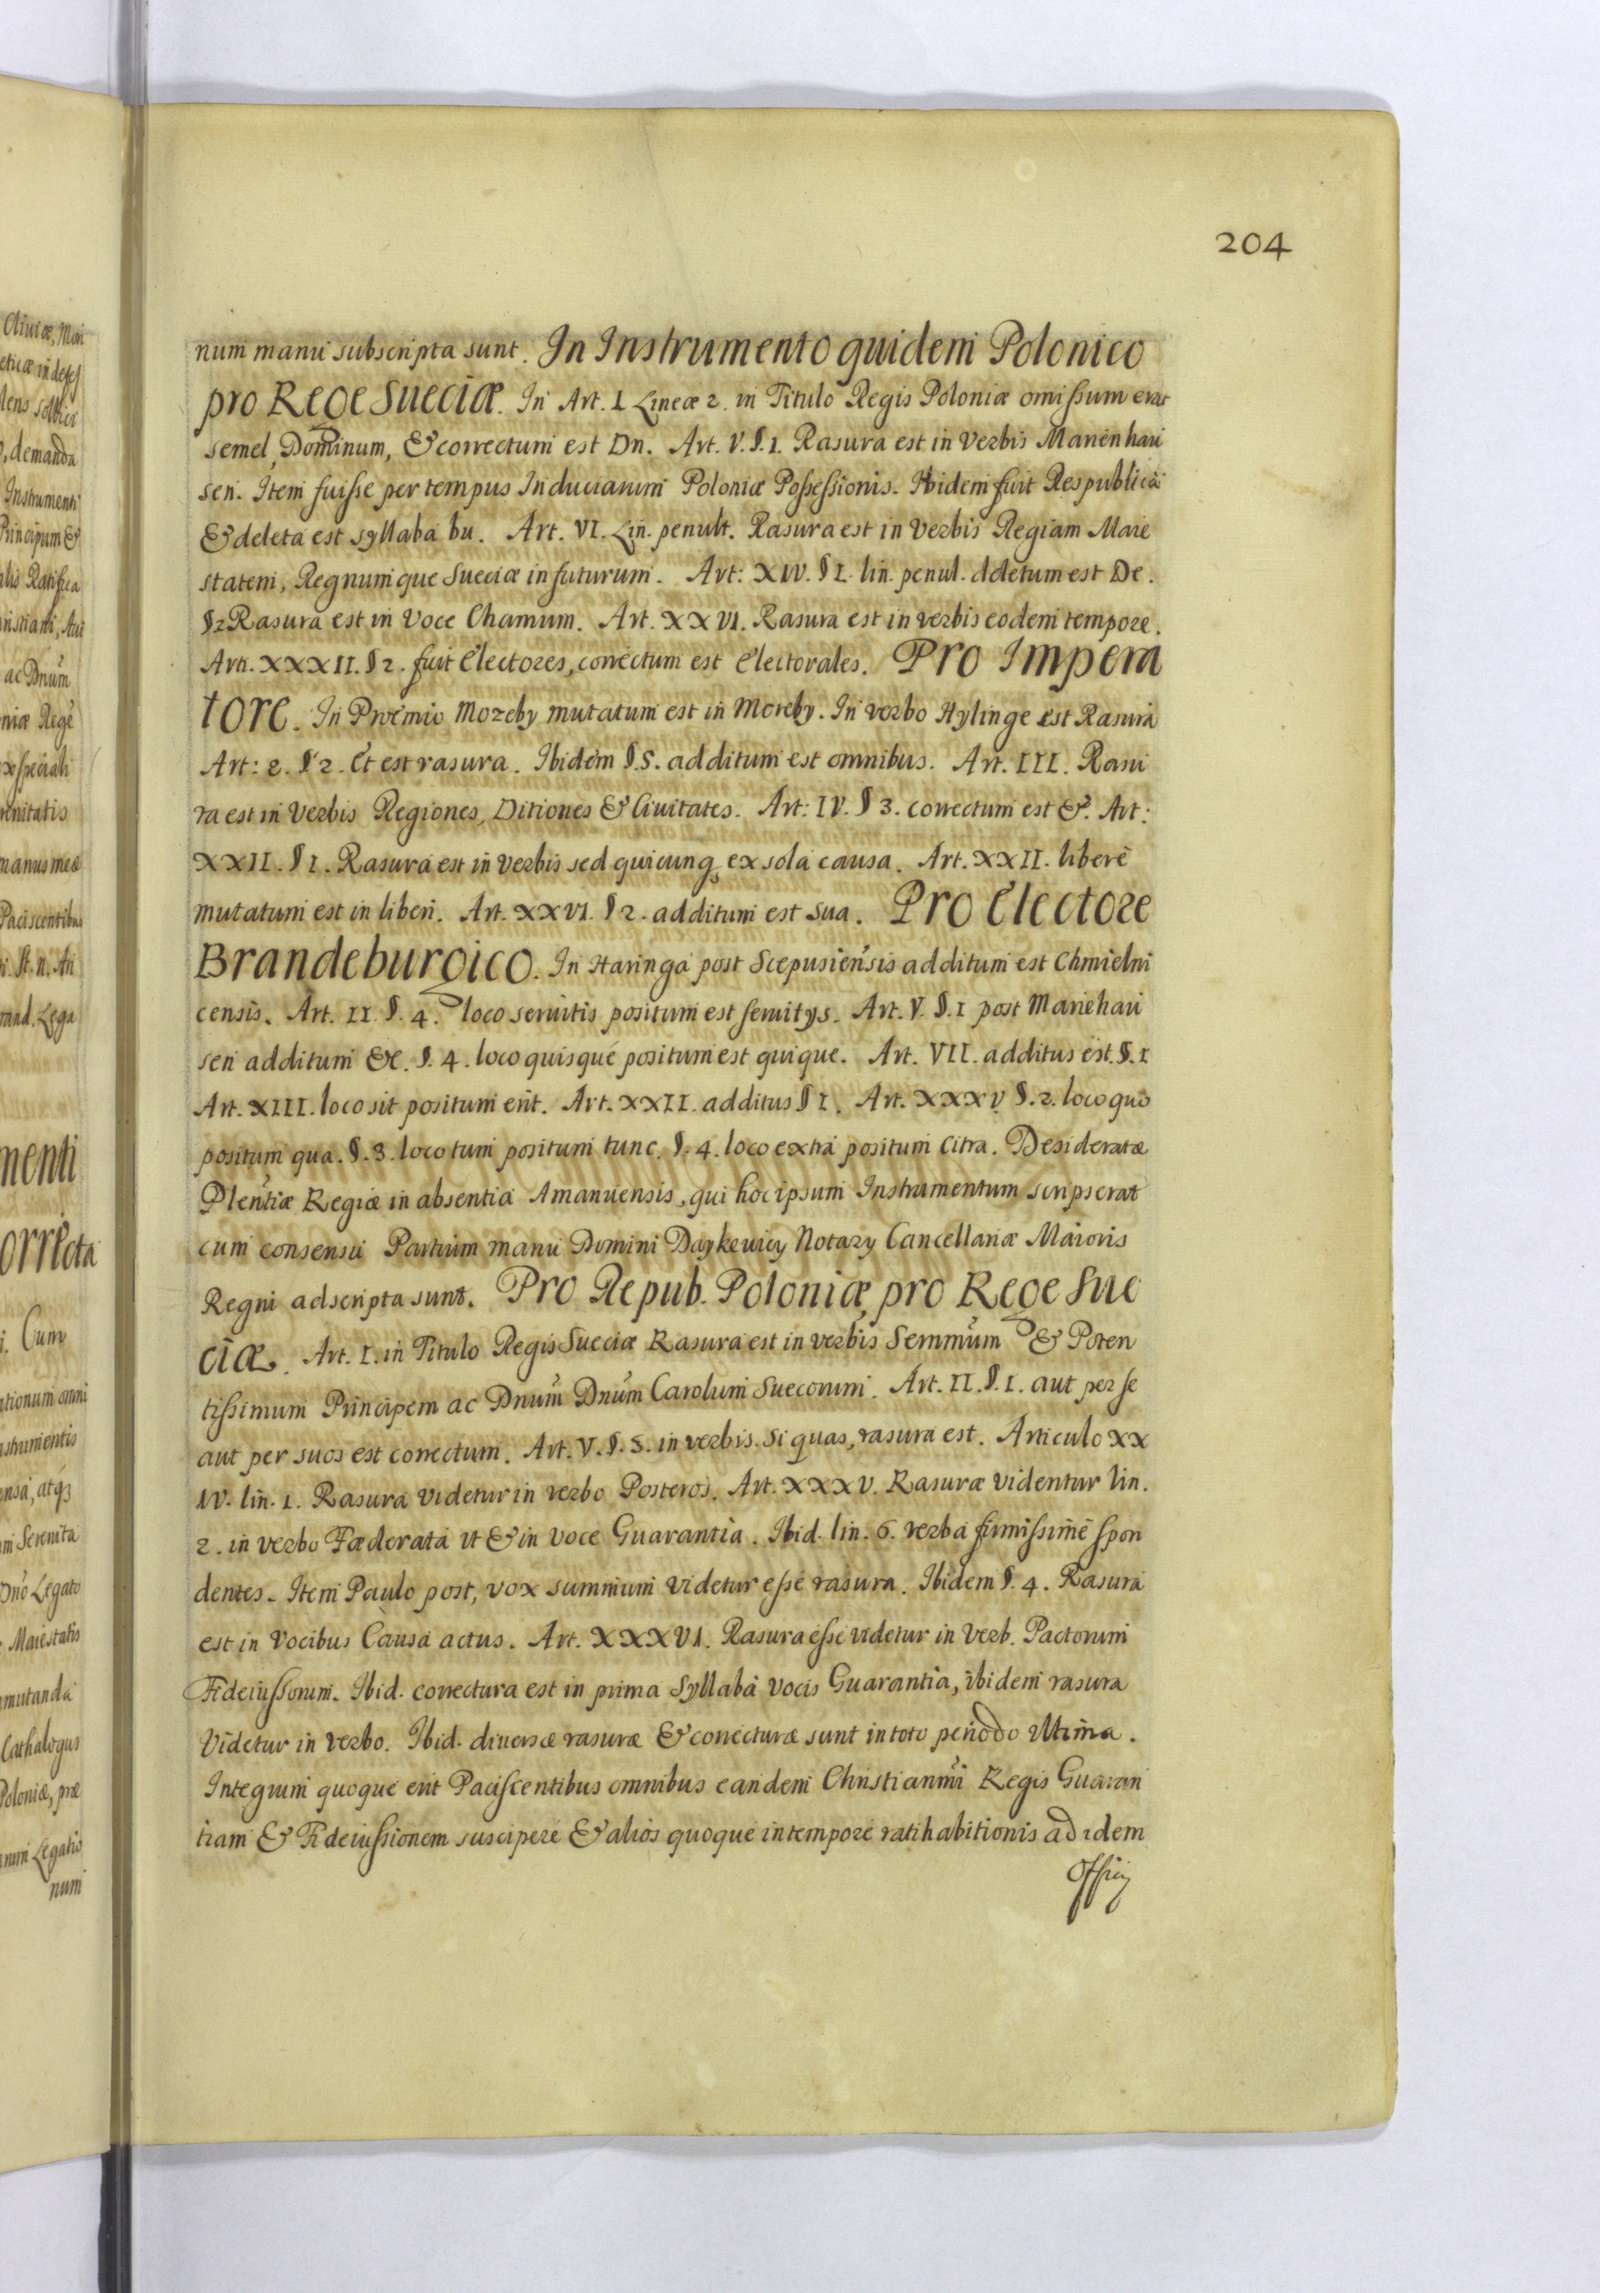 204
num manu subscripta sunt. In Instrumento quidem Polonico
pro Rege Sueciæ. In Art. I Lineæ 2. in Titulo Regis Poloniæ omissum erat
semel, Dominum, & correctum est Dn. Art. V. §. 1. Rasura est in Verbis Marienhau
sen. Item fuisse per tempus Induciarum Poloniæ Possessionis. Ibidem fuit Respublica
& deleta est syllaba bu. Art. VI. Lin. penult. Rasura est in Verbis Regiam Maie
statem, Regnumque Sueciæ in futurum. Art: XIV. § I. lin. penul. deletum est De.
§2 Rasura est in Voce Chamum. Art. XXVI. Rasura est in verbis eodem tempore.
Art. XXXII. § 2. fuit Electores, correctum est Electorales. Pro Impera
tore. In Proemio Moreby mutatum est in Moreby. In verbo Hylinge est Rasura
Art: 2. § 2. Et est rasura. Ibidem §. 5. additum est omnibus. Art. III. Rasu
ra est in Verbis Regiones, Ditiones & Civitates. Art: IV. § 3. correctum est &. Art:
XXII. § 1. Rasura est in verbis sed quicunq ex sola causa. Art. XXII. liberè
mutatum est in liberi. Art. XXVI. § 2. additum est sua. Pro Electore
Brandeburgico. In Haringa post Scepusiensis additum est Chmielni
censis. Art. II §. 4. loco servitis positum est servitys. Art. V. §. 1 post Mariehau
sen additum &. §. 4. loco quisque positum est quique. Art. VII. additus est. §. 1
Art. XIII. loco sit positum erit. Art. XXII. additus § I. Art. XXXV §. 2. loco quo
positum qua. §. 3. loco tum positum tunc. §. 4. loco extra positum Citra. Desideratæ
Plentiæ Regiæ in absentia Amanuensis, qui hoc ipsum Instrumentum scripserat
cum consensu Partium manu Domini Daykewicy Notary Cancellariæ Maioris
Regni adscripta sunt. Pro Repub. Poloniæ, pro Rege Sue
ciæ. Art. I. in Titulo Regis Sueciæ Rasura est in verbis Semmum & Poten
tissimum Principem ac Dnum Dnum Carolum Suecorum. Art. II. §. 1. aut per se
aut per suos est correctum. Art. V. §. 5. in verbis. Si quas, rasura est. Articulo XX
IV. lin. 1. Rasura videtur in verbo Posteros. Art. XXXV. Rasuræ videntur lin.
2. in verbo Fæderata ut & in voce Guarantia. Ibid. lin. 6. verba firmissimè spon
dentes. Item Paulo post, vox summum videtur esse rasura. Ibidem §. 4. Rasura
est in vocibus Causa actus. Art. XXXVI. Rasura esse videtur in Verb. Pactorum
Fideiussorum. Ibid. correctura est in prima Syllaba vocis Guarantia, ibidem rasura
Videtur in verbo. Ibid. diversæ rasuræ & correcturæ sunt in toto periodo Ultima.
Integrum quoque erit Paciscentibus omnibus eandem Christianmi Regis Guaran
tiam & Fideiussionem suscipere & alios quoque in tempore ratihabitionis ad idem
Officij